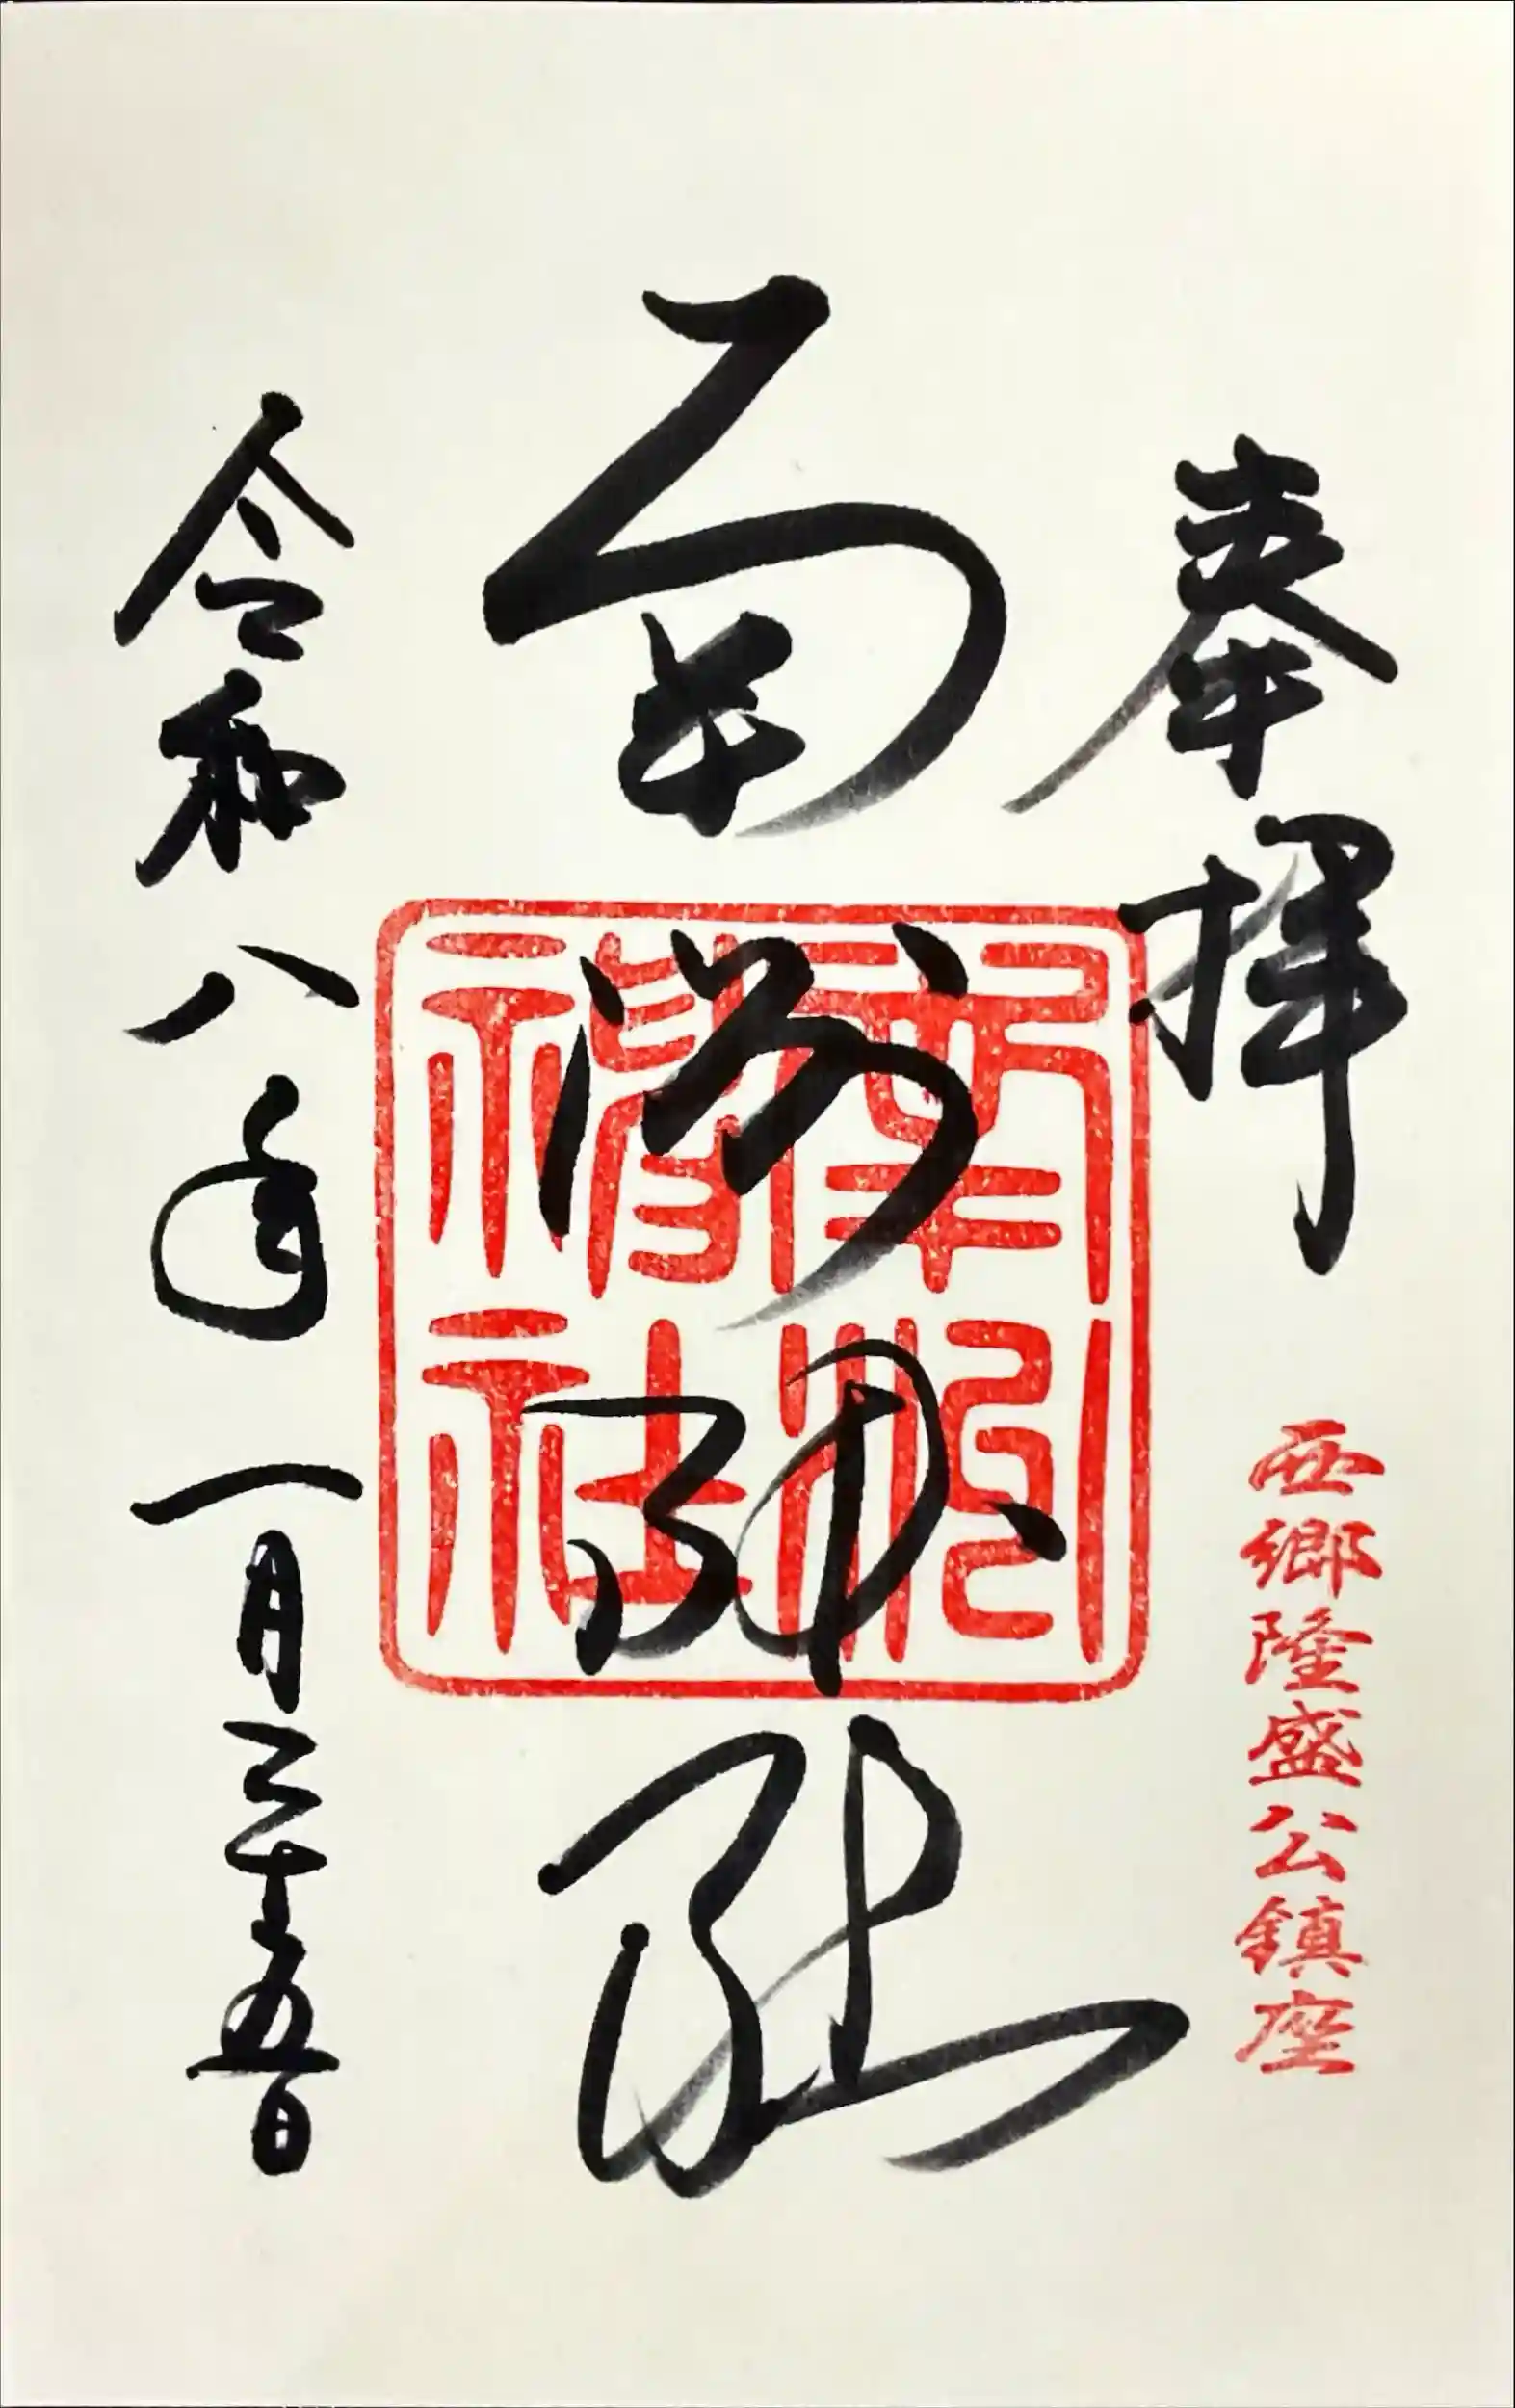 奉拝
西郷隆盛公鎮座
南洲神社
南洲神社
令和八年一月二十五日